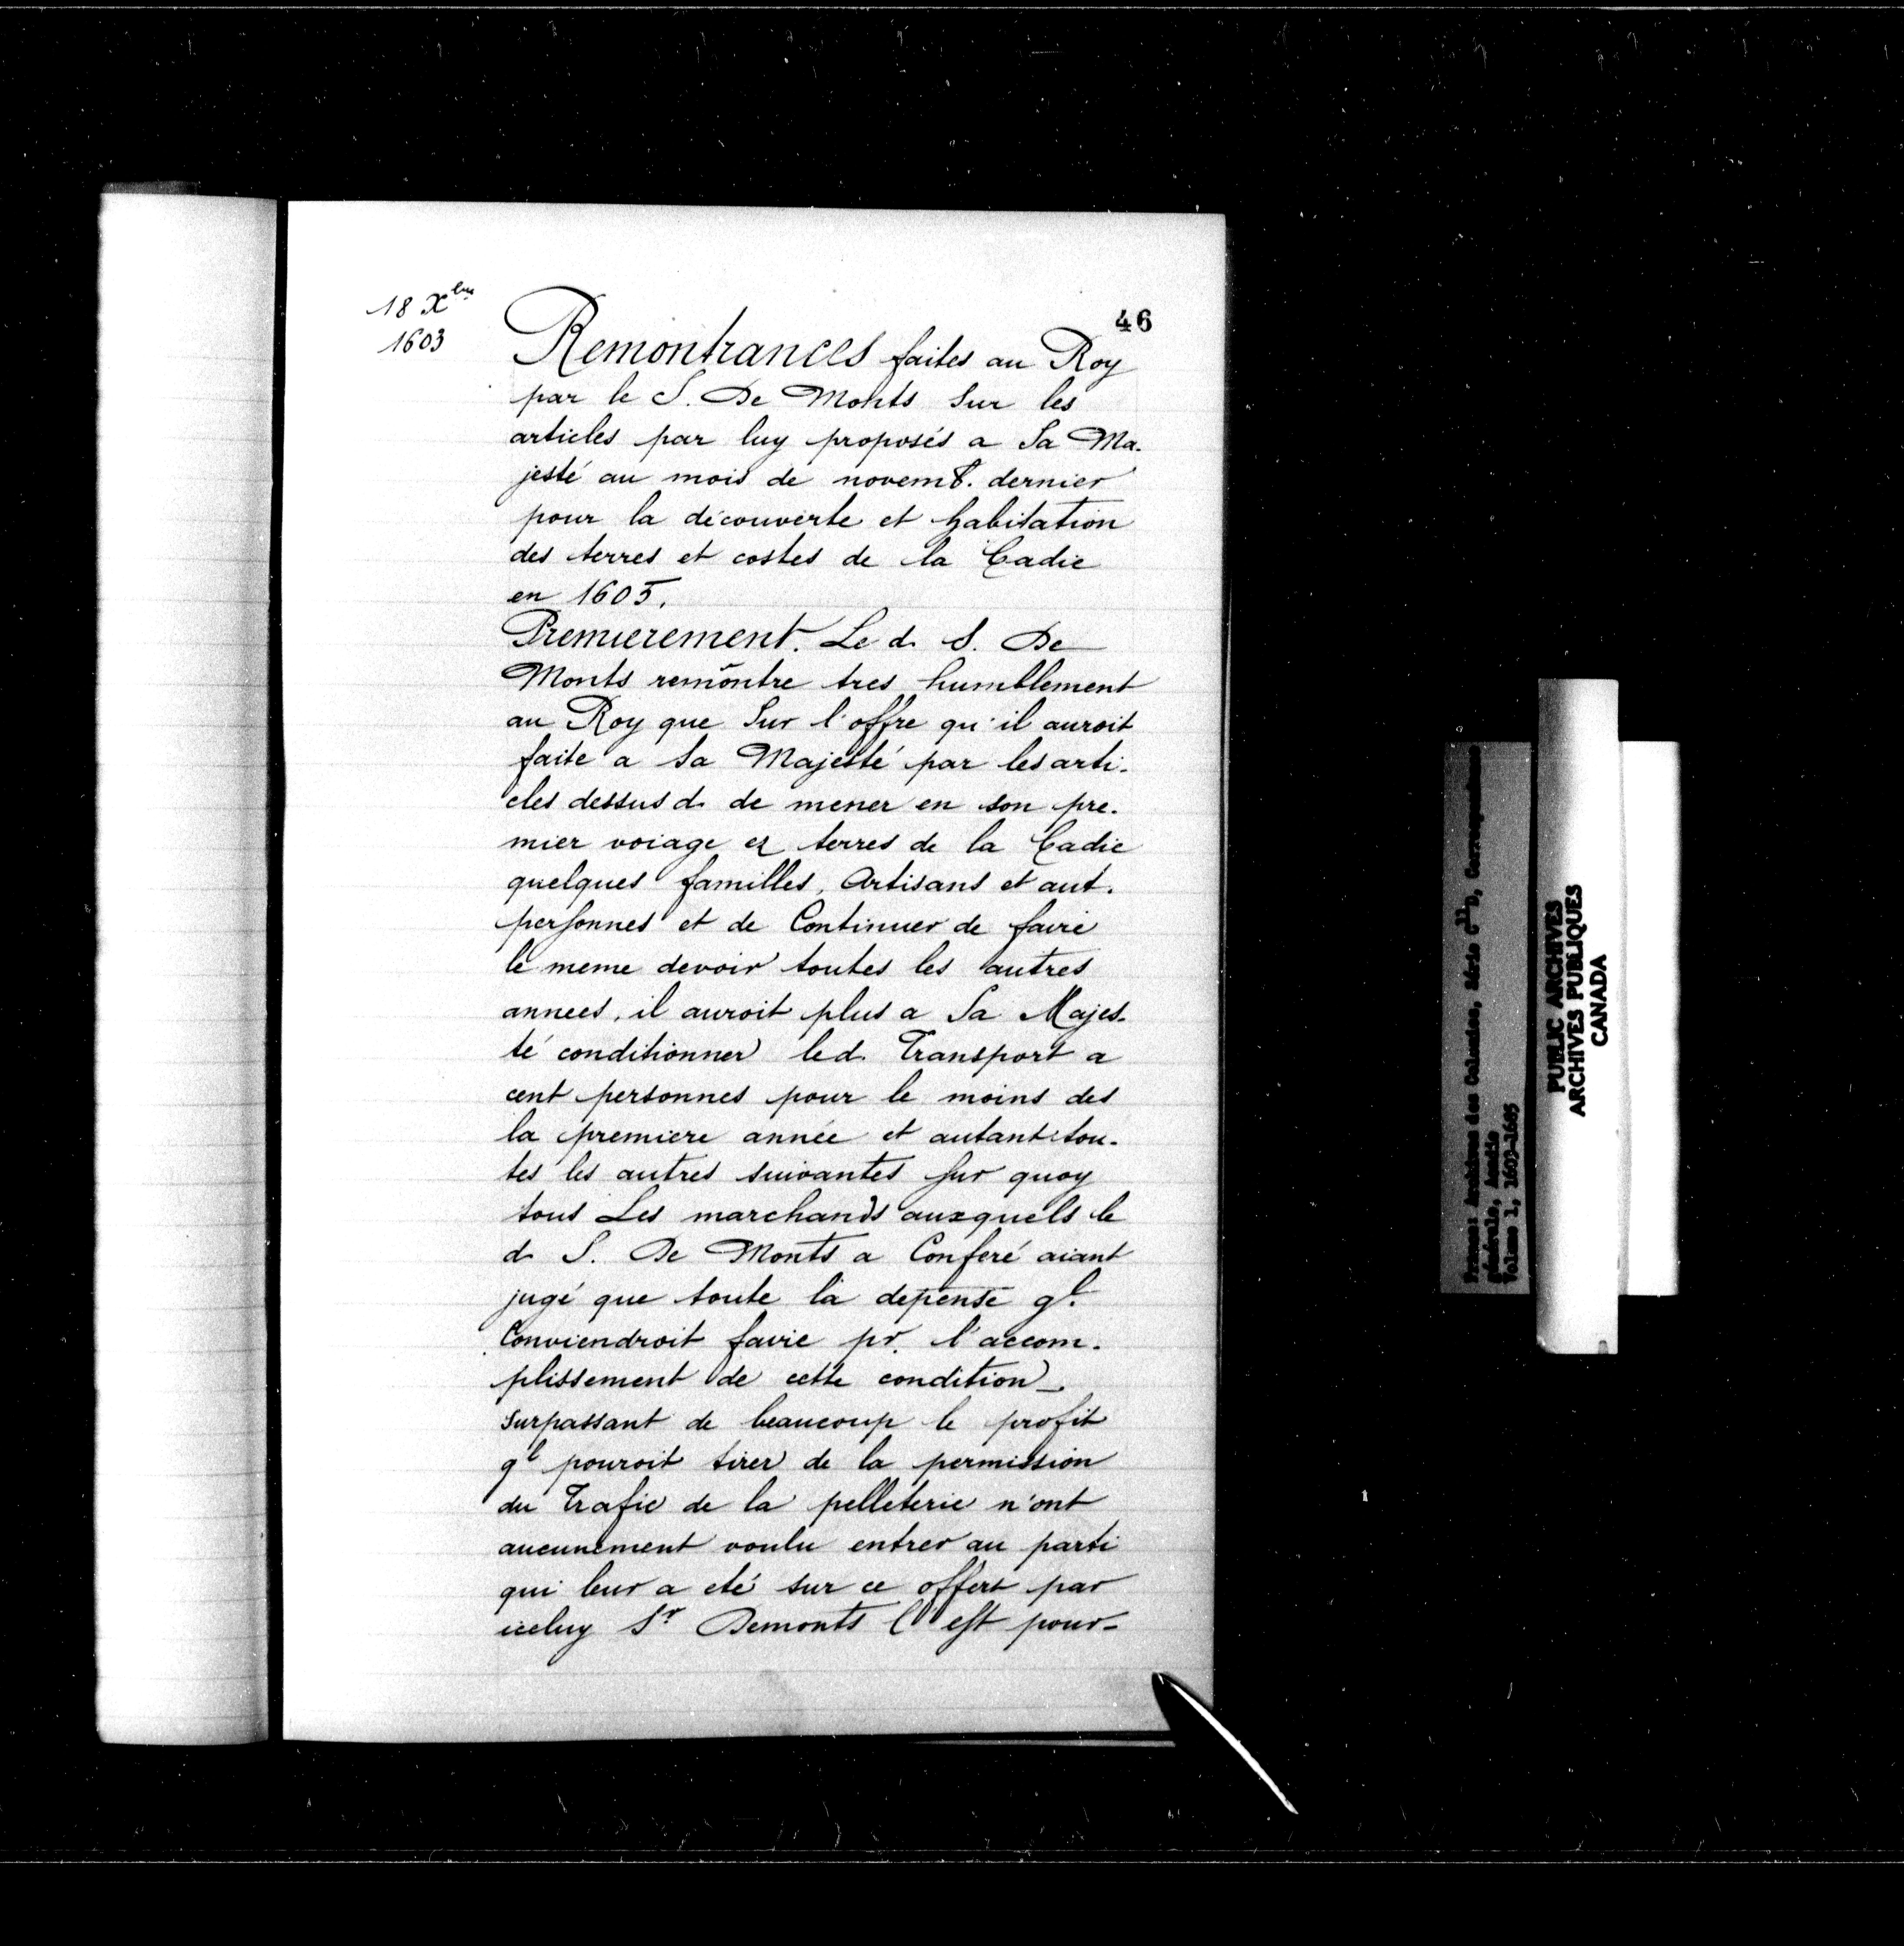 18 Xbre
1603
46
Remontrances faites au Roy
par le S. De Monts Sur les
articles par luy proposés a Sa Ma-
jesté au mois de novemb. dernier
pour la découverte et habitation
des terres et costes de la Cadie
en 1605.
Premierement. Le d. S. De
Monts remontre tres humblement
au Roy que Sur l'offre qu'il auroit
faite a Sa Majesté par les arti-
cles dessus d. de mener en son pre-
mier voiage ez terres de la Cadie
quelques familles, Artisans et aut.
personnes et de Continuer de faire
le meme devoir toutes les autres
annees, il auroit plus a Sa Majes-
té conditionner led. Transport a
cent personnes pour le moins des
la premiere année et autant tou-
tes les autres suivantes sur quoy
tous Les marchands auxquels le
d. S. De Monts a Conferé aiant
jugé que toute la depense ql.
Conviendroit faire pr. l'accom-
plissement de cette condition
surpassant de beaucoup le profit
ql pouroit tirer de la permission
du Trafic de la pelleterie n'ont
aucunement voulu entrer au parti
qui leur a eté sur ce offert par
iceluy Sr Demonts C'est pour-
France: Archives des Colonies, Série C11D, Correspondance
générale, Acadie
Volume 1, 1603-1685
PUBLIC ARCHIVES
ARCHIVES PUBLIQUES
CANADA